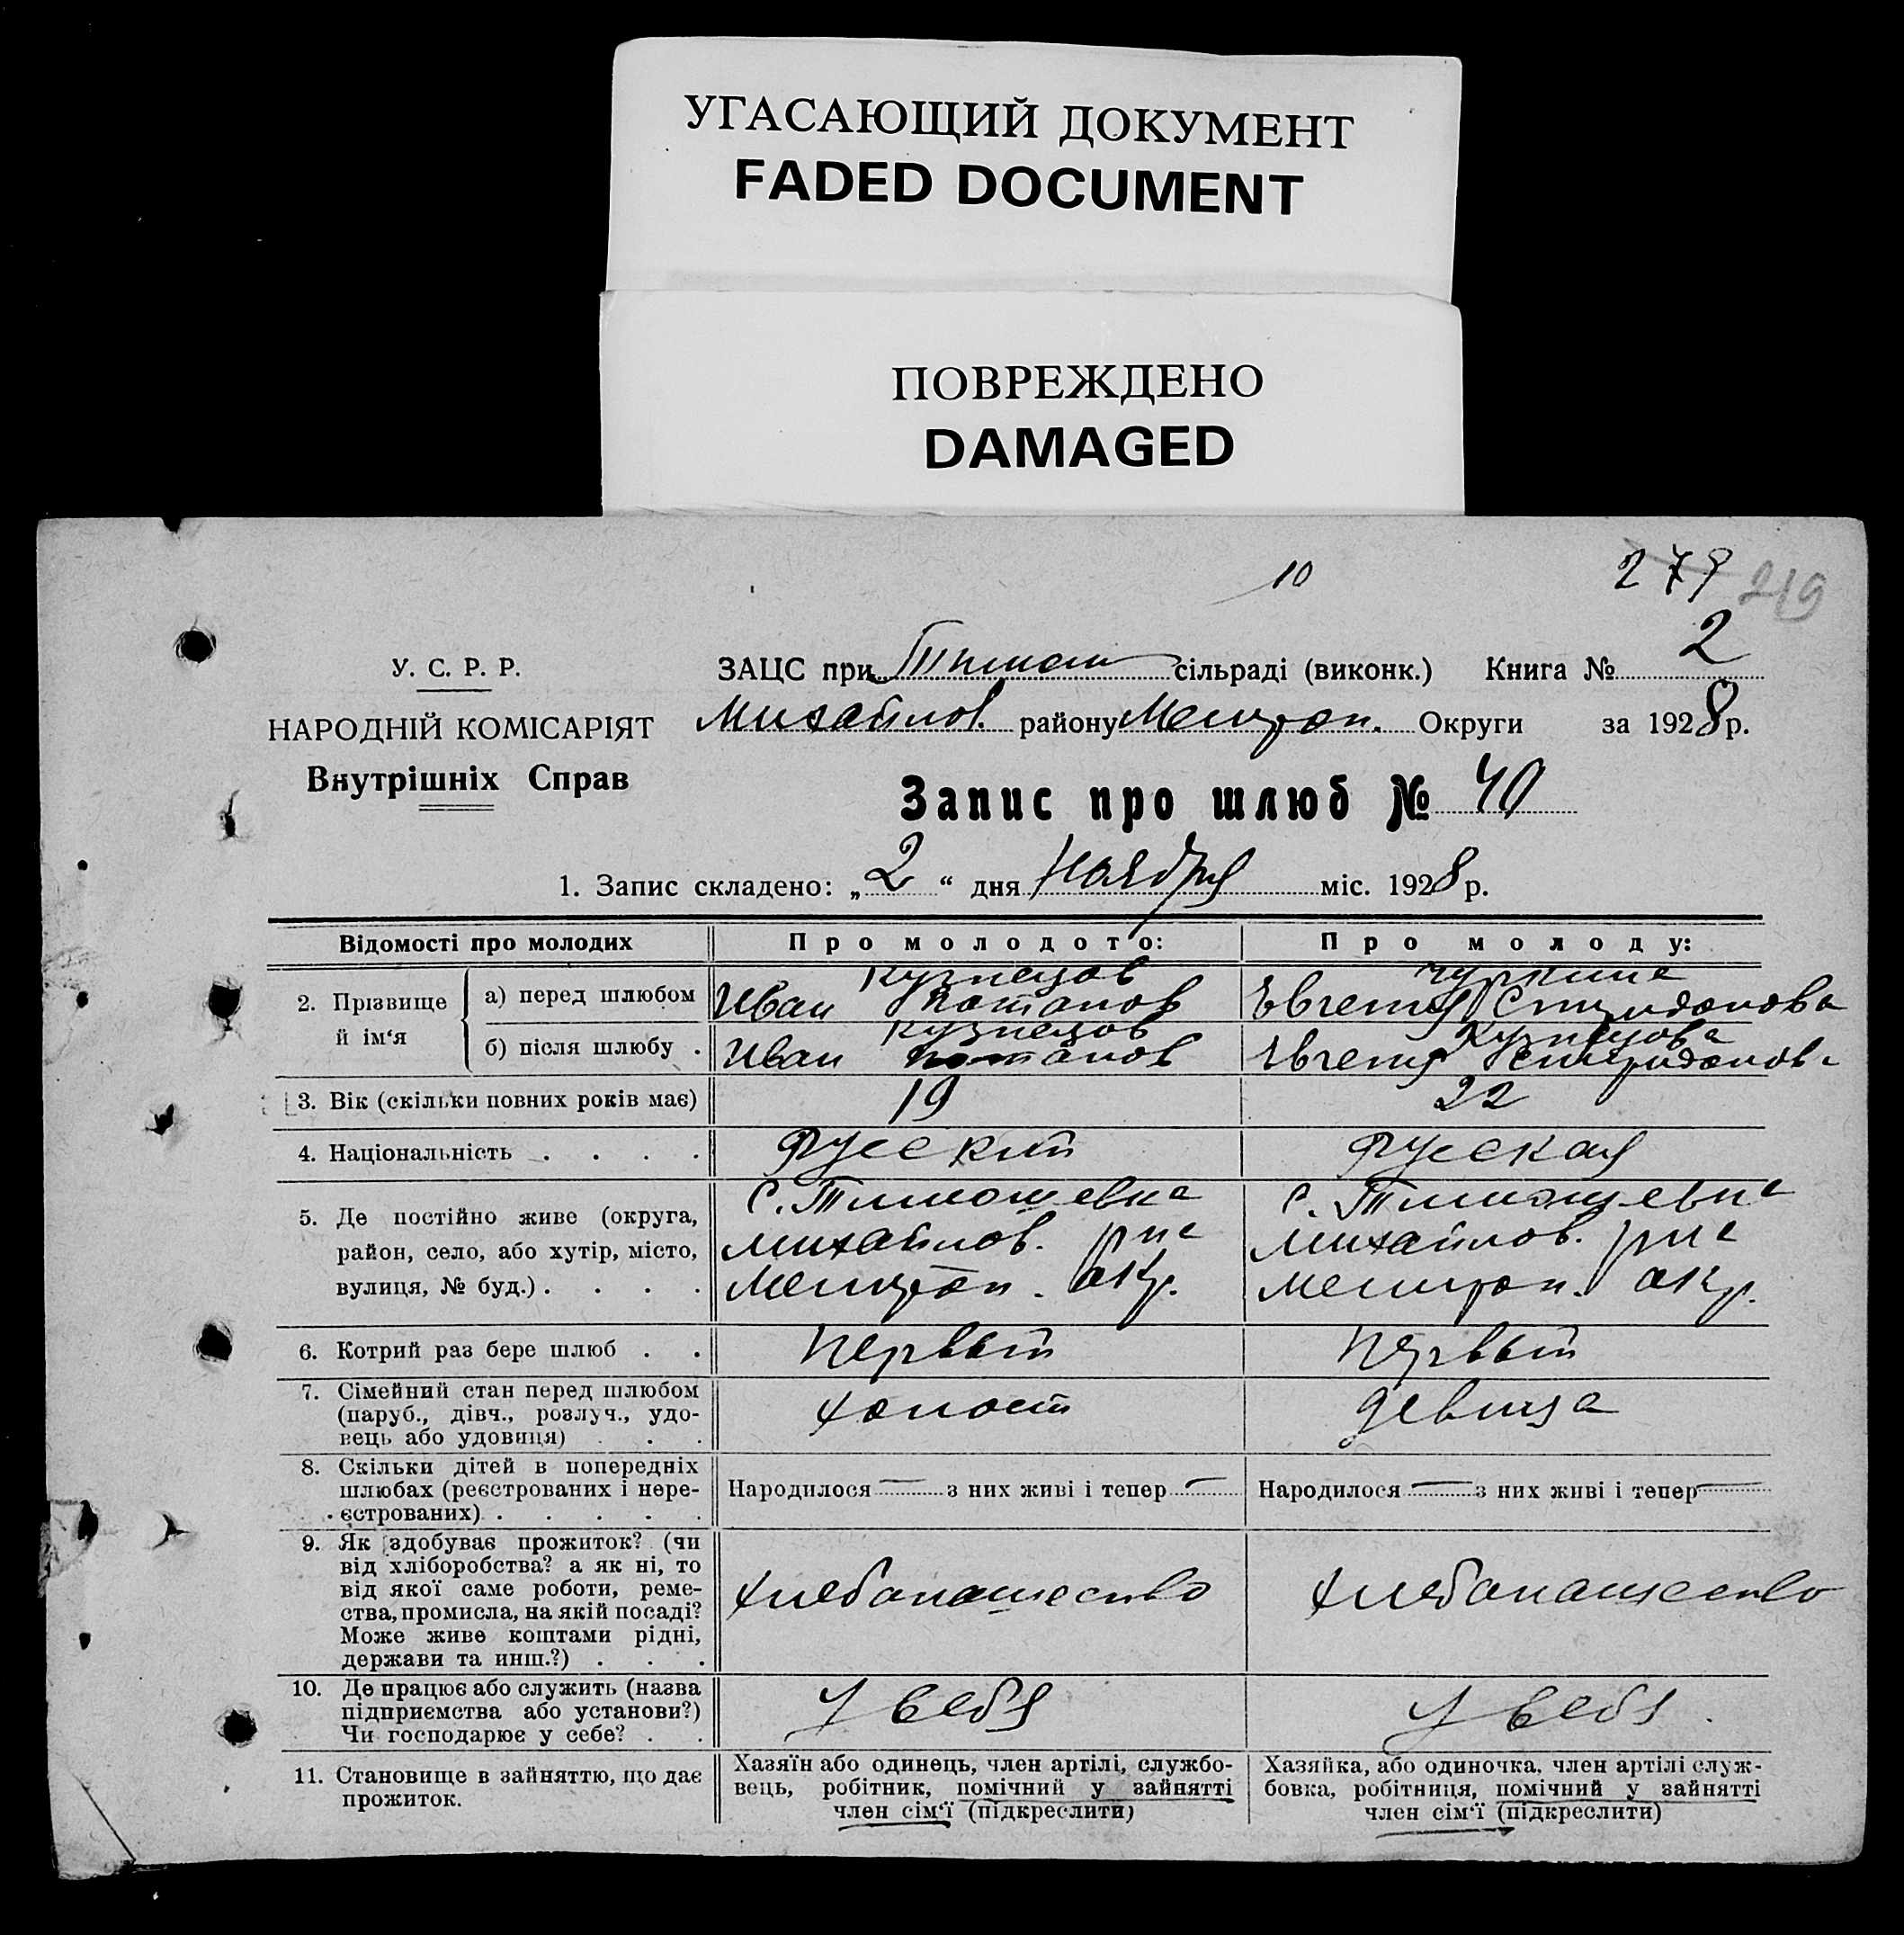 УГАСАЮЩИЙ ДОКУМЕНТ
FADED DOCUMENT
ПОВРЕЖДЕНО
DAMAGED
10
279 219
У. С. Р. Р.
НАРОДНІЙ КОМІСАРІЯТ
Внутрішніх Справ
ЗАЦС при Тимош сільраді (виконк.) Книга № 2
Михайлов. району Мелитоп. Округи за 1928 р.
Запис про шлюб № 40
1. Запис складено: „2“ дня Ноября міс. 1928 р.
Відомості про молодих
Про молодого:
Про молоду:
2. Прізвище й ім‘я
а) перед шлюбом
Кузнецов
Иван Потапов
Чуркина
Евгения Спиридонова
б) після шлюбу .
Кузнецов
Иван Потапов
Кузнецова
Евгения Спиридонова
3. Вік (скільки повних років має)
19
22
4. Національність . . . .
Русский
Русская
5. Де постійно живе (округа,
район, село, або хутір, місто,
вулиця, № буд.) . . . .
с. Тимошевка
Михайлов. р-на
Мелитоп. окр.
с. Тимошевка
Михайлов. р-на
Мелитоп. окр.
6. Котрий раз бере шлюб . .
Первый
Первый
7. Сімейний стан перед шлюбом
(паруб., дівч., розлуч., удо-
вець або удовиця) . . .
холост
девица
8. Скільки дітей в попередніх
шлюбах (реєстрованих і нере-
єстрованих) . . . . .
Народилося — з них живі і тепер —
Народилося — з них живі і тепер —
9. Як здобуває прожиток? (чи
від хліборобства? а як ні, то
від якої саме роботи, реме-
ства, промисла, на якій посаді?
Може живе коштами рідні,
держави та инш.?) . . .
хлебопашество
хлебопашество
10. Де працює або служить (назва
підприємства або установи?)
Чи господарює у себе? . .
У себя
У себя.
11. Становище в зайняттю, що дає
прожиток.
Хазяїн або одинець, член артілі, службо-
вець, робітник, помічний у зайнятті
член сім‘ї (підкреслити)
Хазяйка, або одиночка, член артілі служ-
бовка, робітниця, помічний у зайнятті
член сім‘ї (підкреслити)